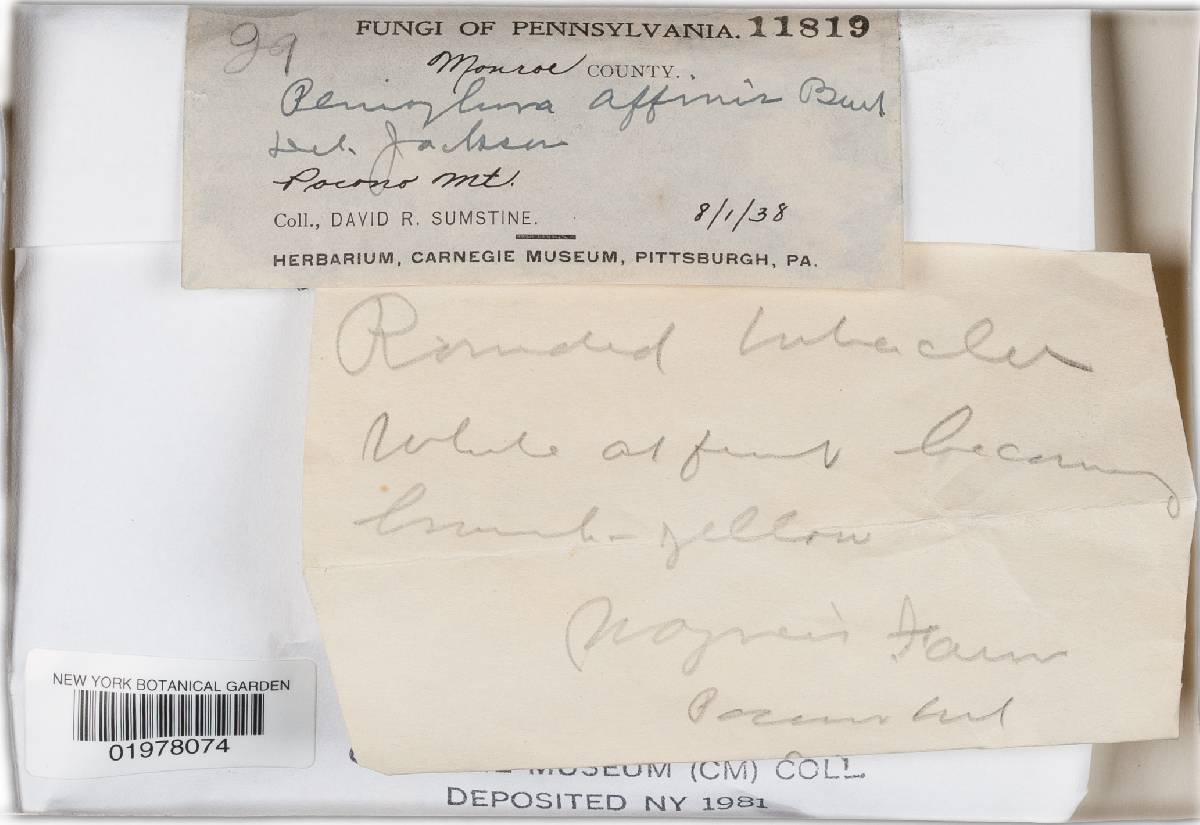 99
FUNGI OF PENNSYLVANIA. 11819
Monroe COUNTY.
Peniophora affinis Burt
Det. Jackson
Pocono Mt.
Coll., DAVID R. SUMSTINE. 8/1/38
HERBARIUM, CARNEGIE MUSEUM, PITTSBURGH, PA.
Rounded tubercles
White at first becoming
yellow
Farm
Pocono Mt
NEW YORK BOTANICAL GARDEN
01978074
MUSEUM (CM) COLL.
DEPOSITED NY 1981